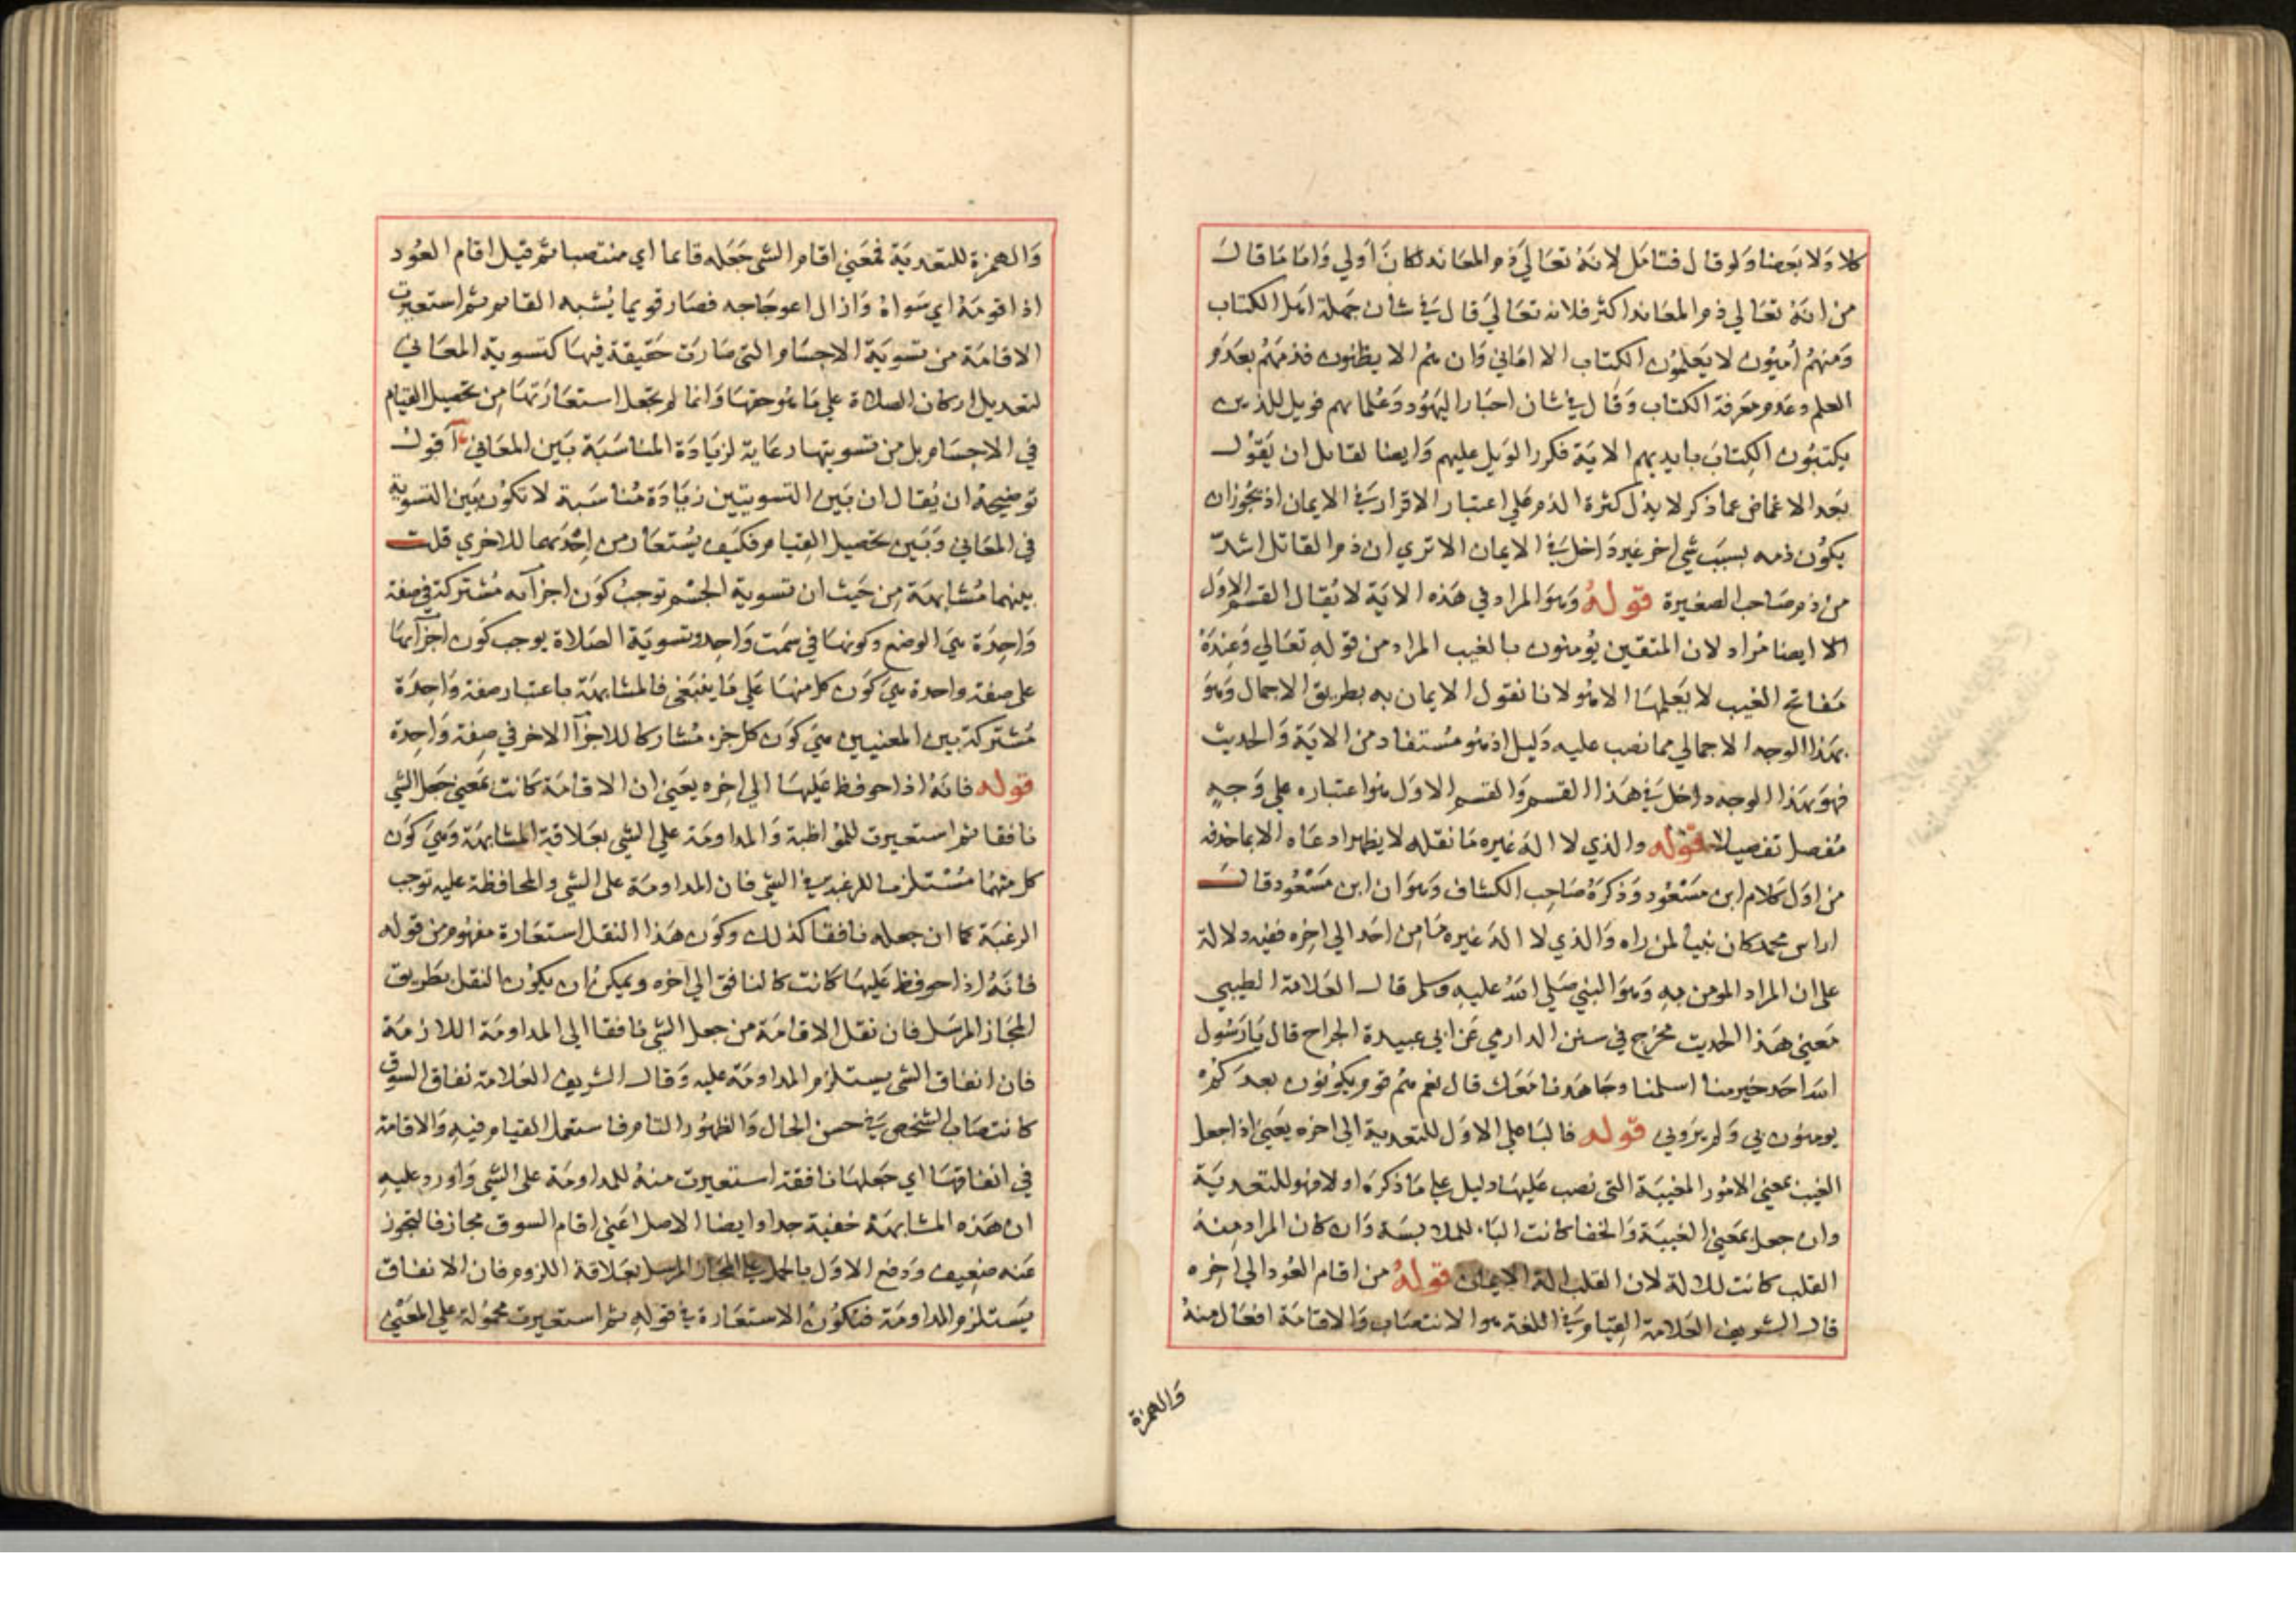 كلا ولا بعضا ولو قال فتامل لانه تعالي ذم المعاند لكان اولي واما ما قال
من انه تعالي ذم المعاند اكثر فلانه تعالي قال في شان جملة اهل الكتاب
ومنهم اميون لا يعلمون الكتاب الا اماني وان هم الا يظنون فذمهم بعدم
العلم وعدم معرفة الكتاب وقال في شان احبار اليهود وعلمايهم فويل للذين
يكتبون الكتاب بايديهم الاية فكرر الويل عليهم وايضا لقايل ان يقول
بعد الاغماض عما ذكر لا يدل كثرة الذم علي اعتبار الاقرار في الايمان اذ يجوز ان
يكون ذمه بسبب شي اخر غير داخل في الايمان الا تري ان ذم القاتل اشد
من ذم صاحب الصغيرة قوله وهو المراد في هذه الاية لا يقال القسم الاول
الا ايضا مراد لان المتقين يومنون بالغيب المراد من قوله تعالي وعنده
مفاتح الغيب لا يعلمها الا هو لانا نقول الايمان به بطريق الاجمال وهو
بهذا الوجه الاجمالي مما نصب عليه دليل اذ هو مستفاد من الاية والحديث
فهو بهذا الوجه داخل في هذا القسم والقسم الاول هو اعتباره علي وجه
مفصل تفصيلا قوله والذي لا اله غيره ما نقله لا يظهر ادعاه الا بما حذفه
من اول كلام ابن مسعود وذكره صاحب الكشاف وهو ان ابن مسعود قال
ان امر محمد كان بينا لمن راه والذي لا اله غيره ما من احد الي اخره ففيه دلالة
علي ان المراد المومن به وهو النبي صلي الله عليه وسلم قال العلامة الطيبي
معني هذا الحديث مخرج في سنن الدارمي عن ابي عبيدة الجراح قال يا رسول
الله احد خير منا اسلمنا وجاهدنا معك قال نعم هم قوم يكونون بعدكم
يومنون بي ولم يروني قوله فالبا علي الاول للتعدية الي اخره يعني اذا جعل
الغيب بمعني الامور المغيبة التي نصب عليها دليل علي ما ذكره اولا فهو للتعدية
وان جعل بمعني الغيبة والخفا كانت الباء للملابسة وان كان المراد منه
القلب كانت للالة لان القلب الة الايمان قوله من اقام العود الي اخره
قال الشريف العلامة القيام في اللغة هو الانتصاب والاقامة افعال منه
والهمزة
والهمزة للتعدية فمعني اقام الشي جعله قايما اي منتصبا ثم قيل اقام العود
اذا قومه اي سواه وازال اعوجاجه فصار قويما يشبه القايم ثم استعيرت
الاقامة من تسوية الاجسام التي صارت حقيقة فيها كتسوية المعاني
لتعديل اركان الصلاة علي ما هو حقها وانما لم يجعل استعارتها من تحصيل القيام
في الاجسام بل من تسويتها رعاية لزيادة المناسبة بين المعاني اقول
توضيحه ان يقال ان بين التسويتين زيادة مناسبة لا تكون بين التسوية
في المعاني وبين تحصيل القيام فكيف يستعار من احديهما للاخري قلت
بينهما مشابهة من حيث ان تسوية الجسم توجب كون اجزآيه مشتركة في صفة
واحدة هي الوضع وكونها في سمت واحد وتسوية الصلاة يوجب كون اجزآيها
علي صفة واحدة هي كون كل منها علي ما ينبغي فالمشابهة باعتبار صفة واحدة
مشتركة بين المعنيين هي كون كل جزء مشاركا للاجزآ الاخر في صفة واحدة
قوله فانه اذا حوفظ عليها الي اخره يعني ان الاقامة كانت بمعني جعل الشي
نافقا ثم استعيرت للمواظبة والمداومة علي الشي بعلاقة المشابهة وهي كون
كل منهما مستلزما للرغبة في الشي فان المداومة علي الشي والمحافظة عليه توجب
الرغبة كما ان جعله نافقا كذلك وكون هذا النقل استعارة مفهوم من قوله
فانه اذا حوفظ عليها كانت كالنافق الي اخره ويمكن ان يكون النقل بطريق
المجاز المرسل فان نقل الاقامة من جعل الشي نافقا الي المداومة اللازمة
فان انفاق الشي يستلزم المداومة عليه وقال الشريف العلامة نفاق السوق
كانتصاب الشخص في حسن الحال والظهور التام فاستعمل القيام فيه والاقامة
في انفاقها اي جعلها نافقة استعيرت منه للمداومة علي الشي واورد عليه
ان هذه المشابهة خفية جدا وايضا الاصل اعني اقام السوق مجاز فالتجوز
عنه ضعيف ودفع الاول بالحمل علي المجاز المرسل بعلاقة اللزوم فان الانفاق
يستلزم المداومة فتكون الاستعارة في قوله ثم استعيرت محمولة علي المعني